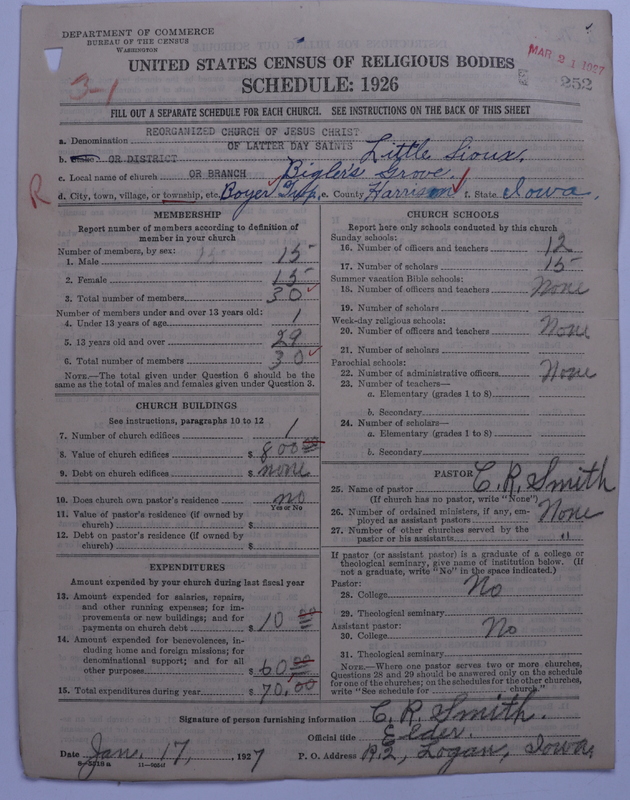 DEPARTMENT OF COMMERCE
BUREAU OF THE CENSUS
WASHINGTON
MAR 21 1927
UNITED STATES CENSUS OF RELIGIOUS BODIES
SCHEDULE: 1926
3-1
252
FILL OUT A SEPARATE SCHEDULE FOR EACH CHURCH. SEE INSTRUCTIONS ON THE BACK OF THIS SHEET
REORGANIZED CHURCH OF JESUS CHRIST
a. Denomination OF LATTER DAY SAINTS
b. OR DISTRICT Little Sioux.
c. Local name of church OR BRANCH Bigler's Grove.
R d. City, town, village, or township, etc. Boyer Twp. e. County Harrison f. State Iowa.
MEMBERSHIP
Report number of members according to definition of
member in your church
Number of members, by sex:
1. Male 15
2. Female 15
3. Total number of members 30
Number of members under and over 13 years old:
4. Under 13 years of age 1
5. 13 years old and over 29
6. Total number of members 30
NOTE.—The total given under Question 6 should be the
same as the total of males and females given under Question 3.
CHURCH BUILDINGS
See instructions, paragraphs 10 to 12
7. Number of church edifices 1
8. Value of church edifices $ 800 00
9. Debt on church edifices $ none
10. Does church own pastor's residence no
Yes or No
11. Value of pastor's residence (if owned by
church) $
12. Debt on pastor's residence (if owned by
church) $
EXPENDITURES
Amount expended by your church during last fiscal year
13. Amount expended for salaries, repairs,
and other running expenses; for im-
provements or new buildings; and for
payments on church debt $ 10 00
14. Amount expended for benevolences, in-
cluding home and foreign missions; for
denominational support; and for all
other purposes $ 60 00
15. Total expenditures during year $ 70.00
CHURCH SCHOOLS
Report here only schools conducted by this church
Sunday schools:
16. Number of officers and teachers 12
17. Number of scholars 15
Summer vacation Bible schools:
18. Number of officers and teachers None
19. Number of scholars
Week-day religious schools:
20. Number of officers and teachers None
21. Number of scholars
Parochial schools:
22. Number of administrative officers None
23. Number of teachers—
a. Elementary (grades 1 to 8)
b. Secondary
24. Number of scholars—
a. Elementary (grades 1 to 8)
b. Secondary
PASTOR
25. Name of pastor C. R. Smith
(If church has no pastor, write "None")
26. Number of ordained ministers, if any, em-
ployed as assistant pastors None
27. Number of other churches served by the
pastor or his assistants "
If pastor (or assistant pastor) is a graduate of a college or
theological seminary, give name of institution below. (If
not a graduate, write "No" in the space indicated.)
Pastor:
28. College No
29. Theological seminary
Assistant pastor:
30. College No
31. Theological seminary
NOTE.—Where one pastor serves two or more churches,
Questions 28 and 29 should be answered only on the schedule
for one of the churches; on the schedules for the other churches,
write "See schedule for church."
Signature of person furnishing information C. R. Smith.
Official title Elder.
Date Jan. 17, 1927 P. O. Address R.2, Logan, Iowa.
8-5518a